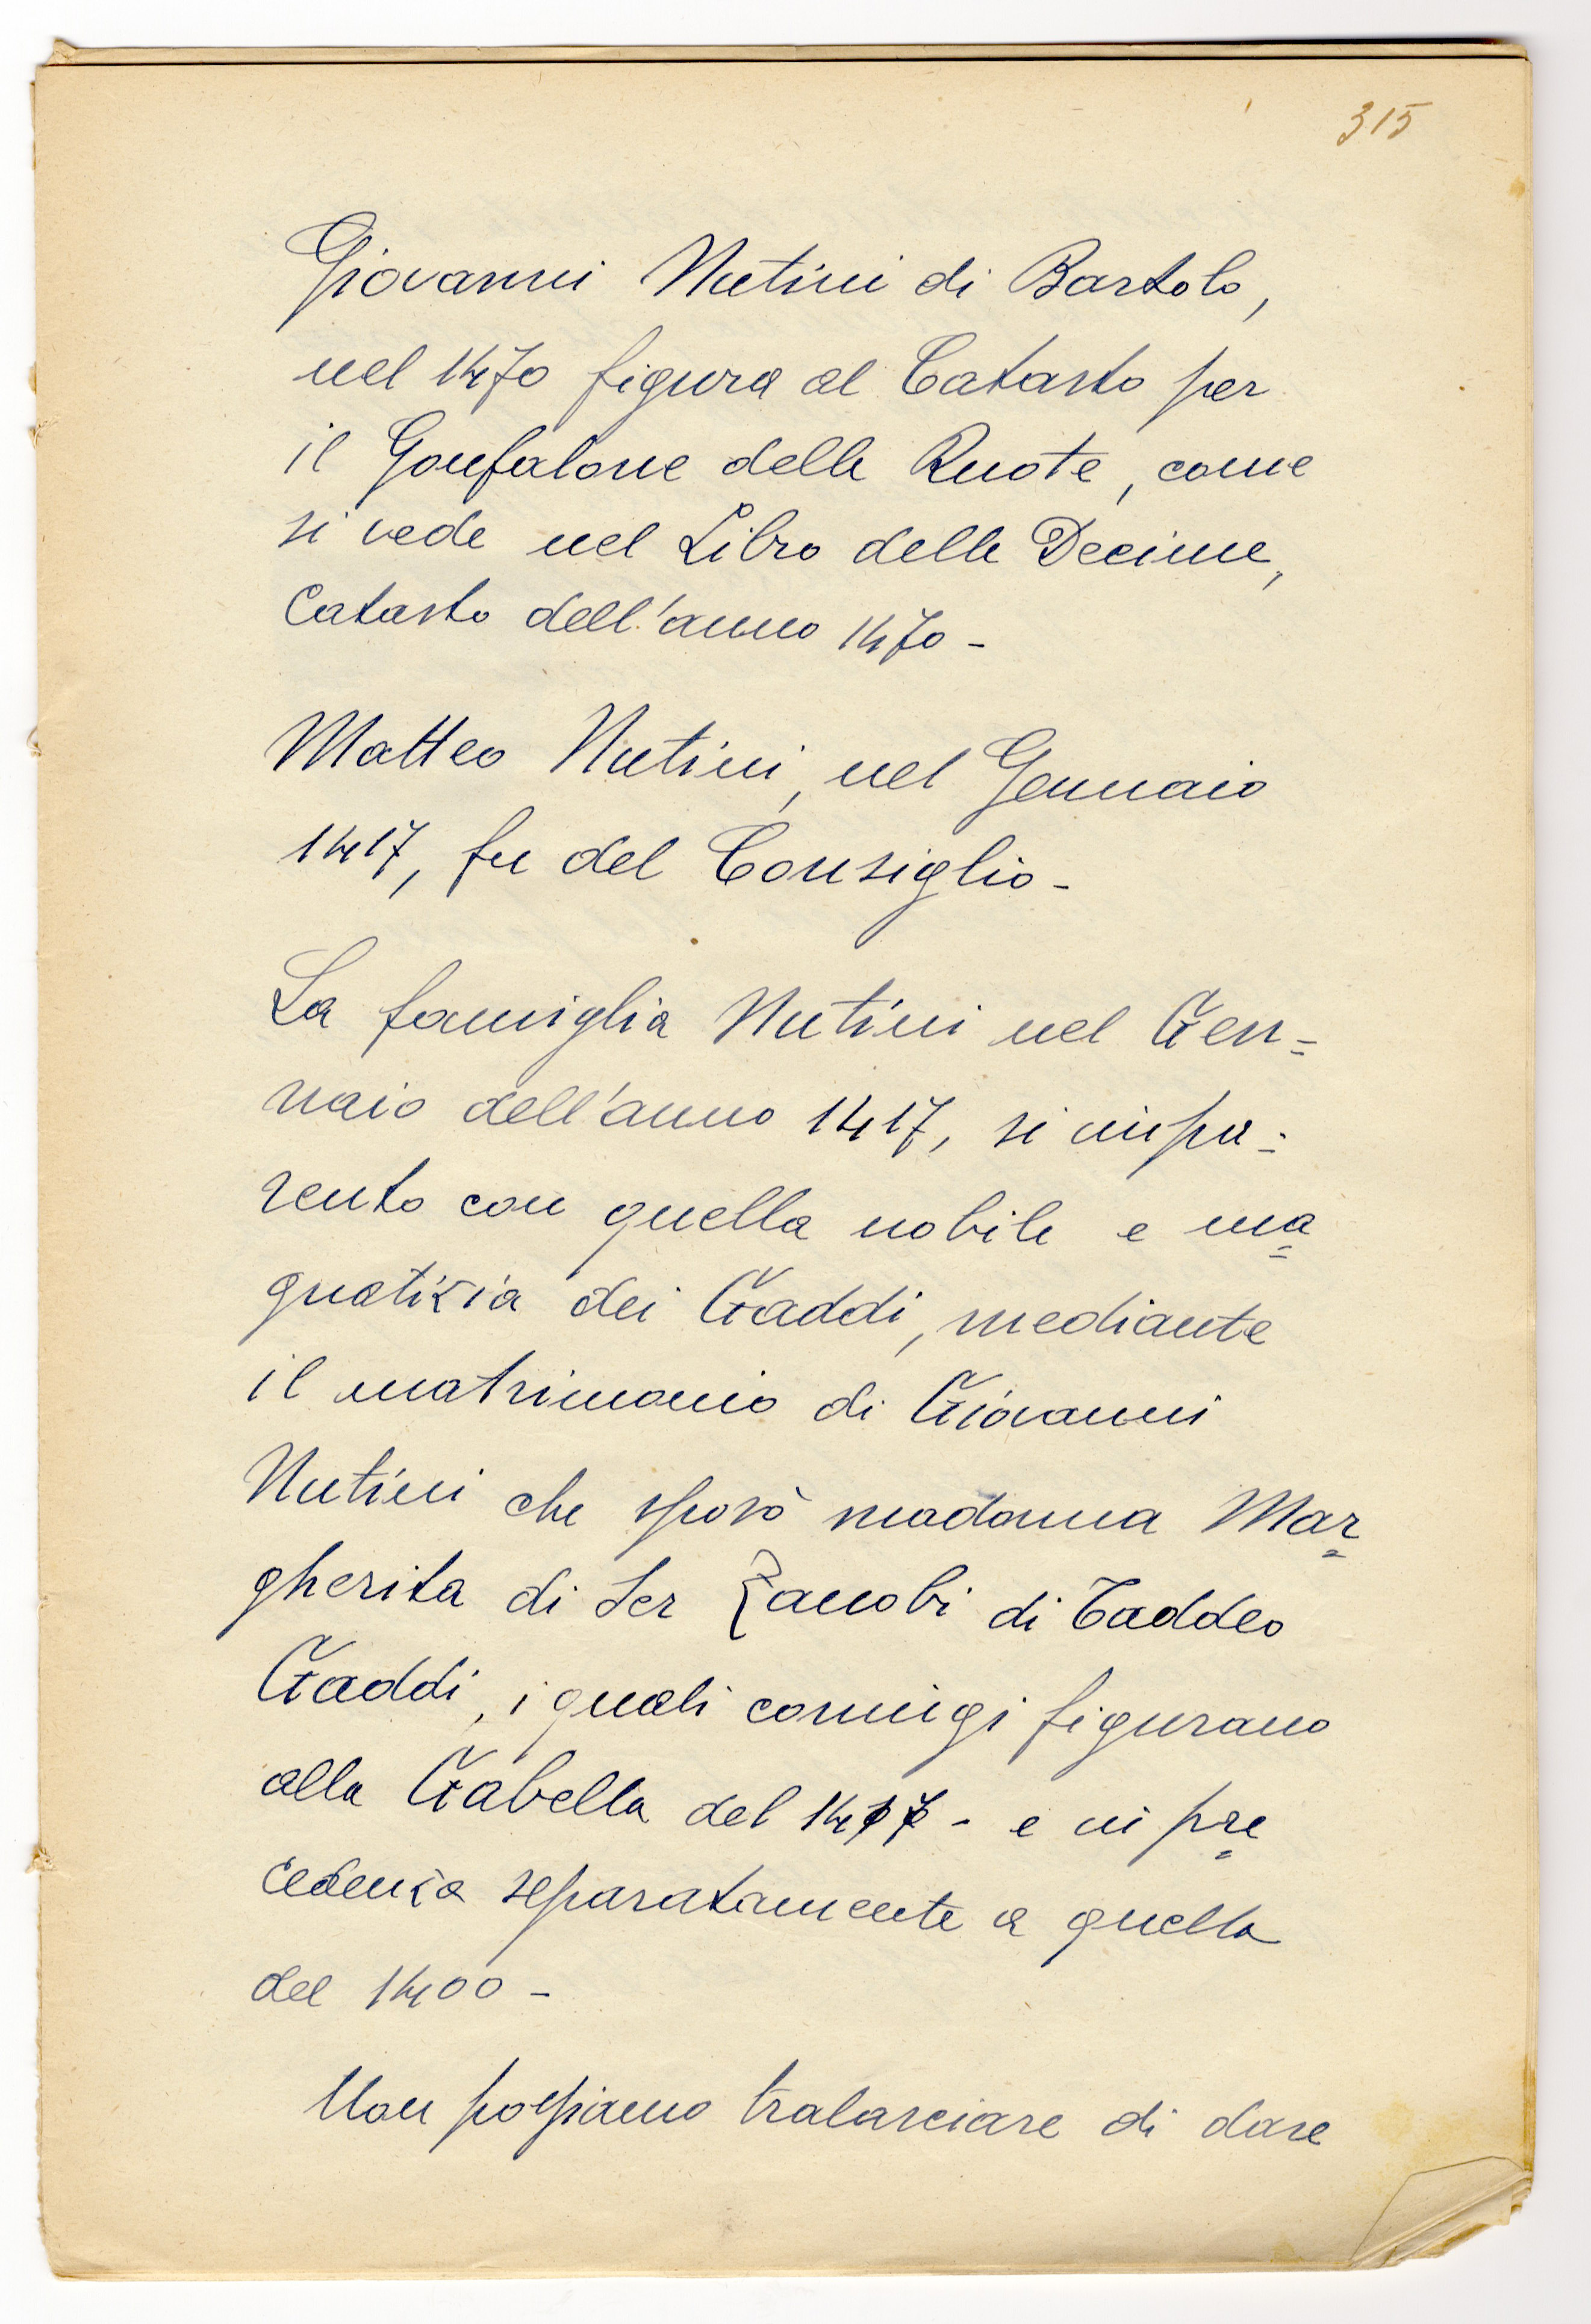 315
Giovanni Nutini di Bartolo,
nel 1470 figura al Catasto per
il Gonfalone delle Ruote, come
si vede nel Libro delle Decime,
Catasto dell'anno 1470 -
Matteo Nutini, nel Gennaio
1417, fu del Consiglio -
La famiglia Nutini nel Gen=
naio dell'anno 1417, si impa=
rento con quella nobile e ma=
gnatizia dei Gaddi, mediante
il matrimonio di Giovanni
Nutini che sposò madonna Mar=
gherita di Ser Zanobi di Taddeo
Gaddi, i quali coniugi figurano
alla Gabella del 1417 - e in pre=
cedenza separatamente a quella
del 1400 -
Non possiamo tralasciare di dare